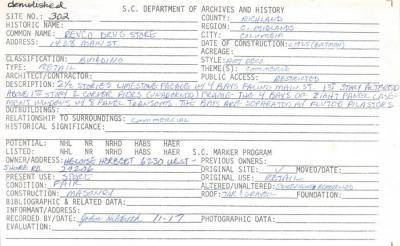 demolished
SITE NO.: 302 S.C. DEPARTMENT OF ARCHIVES AND HISTORY
HISTORIC NAME: COUNTY: RICHLAND
COMMON NAME: REVCO DRUG STORE REGION: C. MIDLANDS
ADDRESS: 1428 MAIN ST. CITY: COLUMBIA
DATE OF CONSTRUCTION:
ACREAGE:
CLASSIFICATION: BUILDING STYLE: ART DECO
TYPE: RETAIL THEME(S): COMMERCE
ARCHITECT/CONTRACTOR: PUBLIC ACCESS: RESTRICTED
DESCRIPTION: 2½ STORIES LIMESTONE FACADE W/ 4 BAYS FACING MAIN ST. 1ST STORY ALTERED
ABOVE 1ST STORY 2 CORNER PIERS (UNADORNED) FRAME THE 4 BAYS OF EIGHT PANEL CASE-
MENT WINDOWS W/ 8 PANEL TRANSOMS THE BAYS ARE SEPARATED BY FLUTED PILASTERS
OUTBUILDINGS:
RELATIONSHIP TO SURROUNDINGS: COMMERCIAL
HISTORICAL SIGNIFICANCE:
POTENTIAL: NHL NR NRHD HABS HAER S.C. MARKER PROGRAM
LISTED: NHL NR NRHD HABS HAER PREVIOUS OWNERS:
OWNER/ADDRESS: HELOISE HERBERT 6230 WEST- ORIGINAL SITE: √ MOVED/DATE:
SHORE RD. 29206 ORIGINAL USE: RETAIL
PRESENT USE: STORE ALTERED/UNALTERED:
CONDITION: FAIR ROOF: TAR/GRAVEL FOUNDATION:
CONSTRUCTION: MASONRY
BIBLIOGRAPHIC & RELATED DATA:
INFORMANT/ADDRESS:
RECORDED BY/DATE: 11-17 PHOTOGRAPHIC DATA:
EVALUATION: